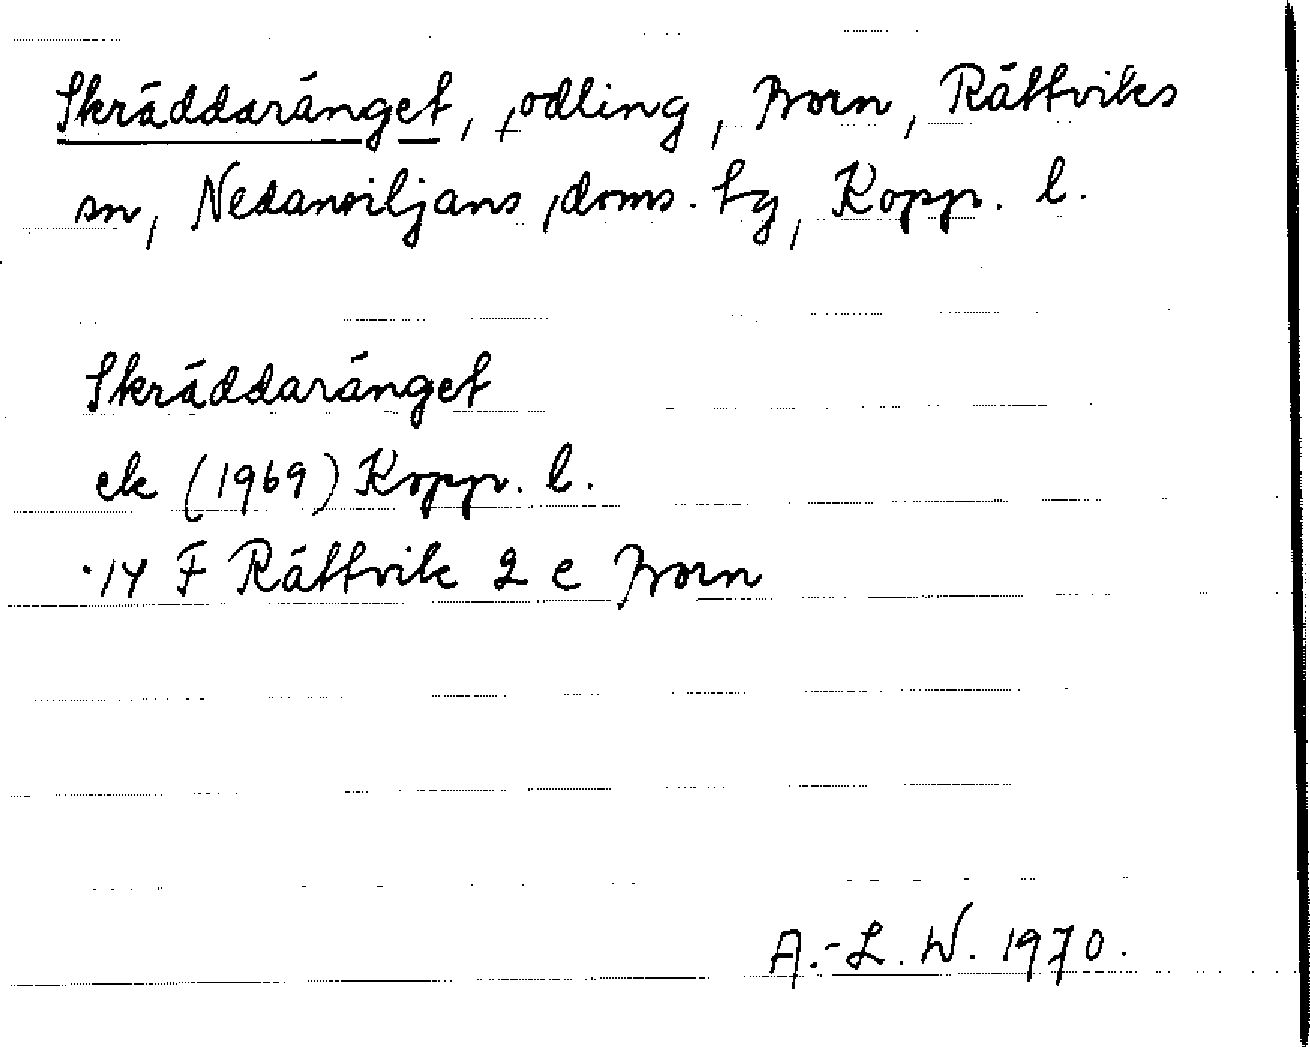 Skräddaränget, odling, Born, Rättviks
sn, Nedansiljans doms. hg, Kopp. l.
Skräddaränget
ek (1969) Kopp. l.
14 F Rättvik 2 e Born
A.-L. W. 1970.